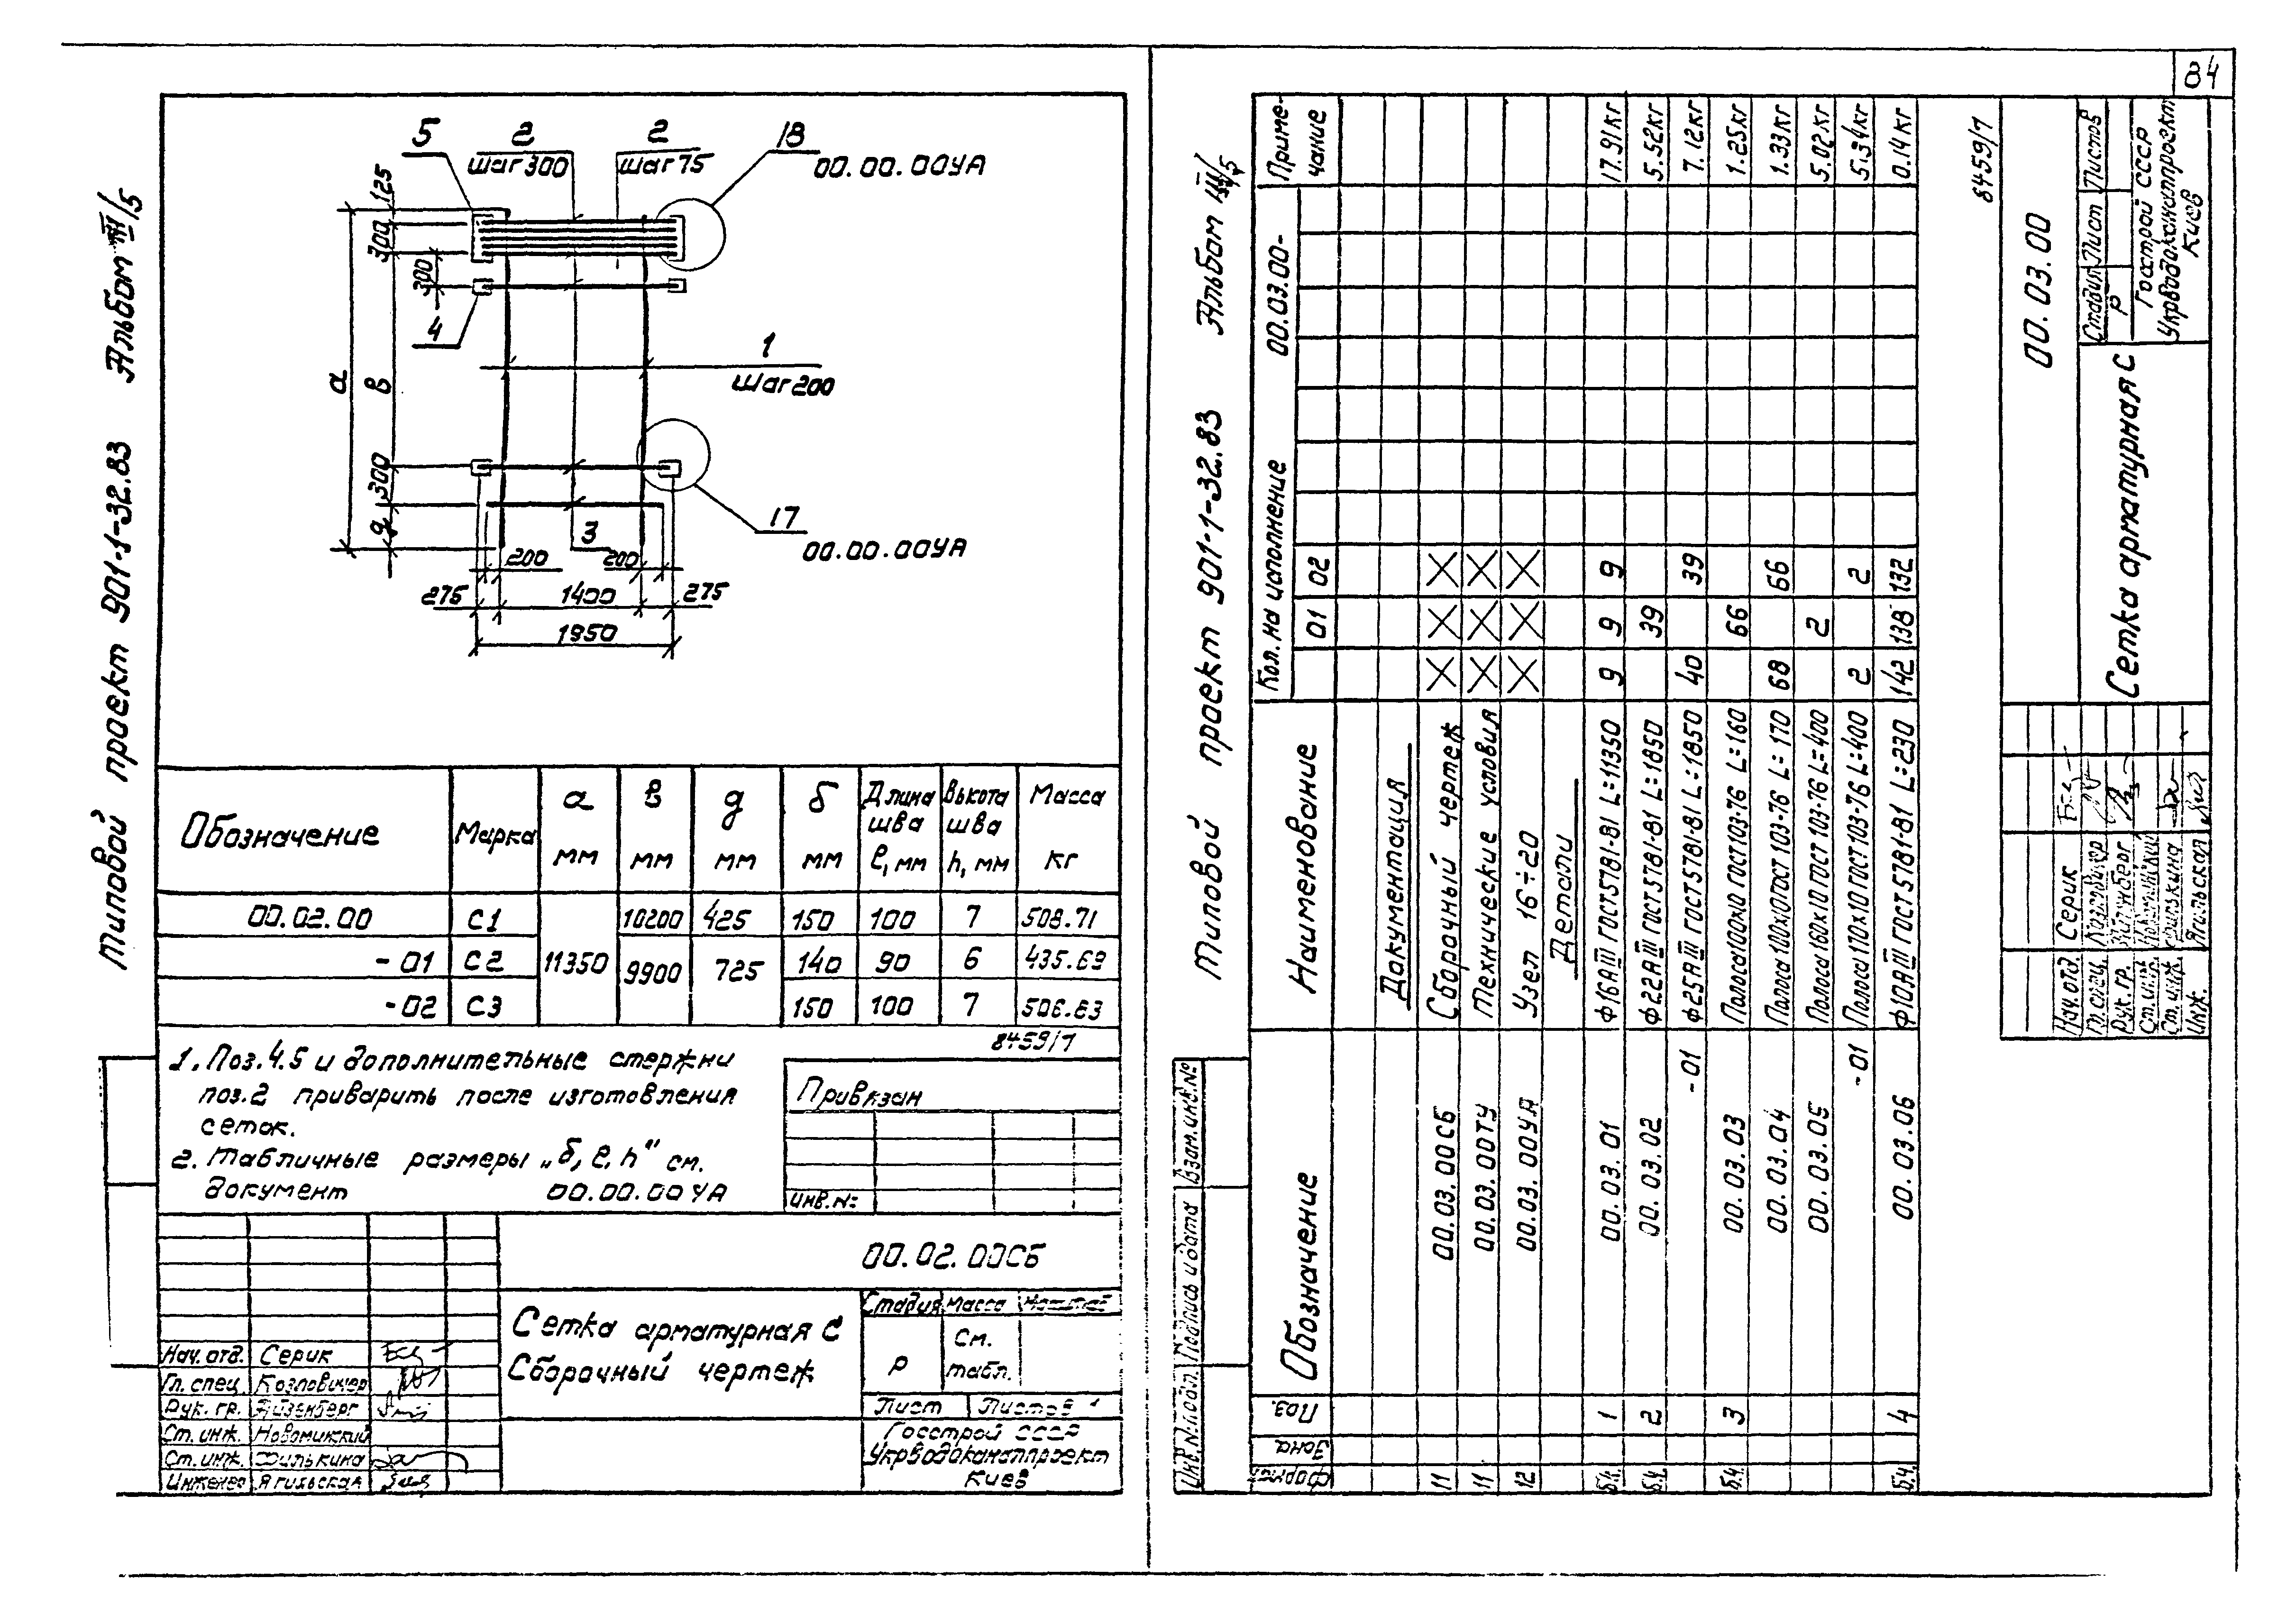 84
Типовой проект 901-1-32.83 Альбом III/5
5
2
шаг 300
2
шаг 75
18
00.00.00УА
125
300
300
4
1
шаг 200
а
в
300
д
17
00.00.00УА
3
200
200
275
1400
275
1950
Обозначение Марка а мм в мм д мм б мм Длина шва ℓ, мм Высота шва h, мм Масса кг
00.02.00 С1 11350 10200 425 150 100 7 508.71
-01 С2 9900 725 140 90 6 435.69
-02 С3 150 100 7 506.63
8459/7
1. Поз. 4.5 и дополнительные стержни
поз.2 приварить после изготовления
сеток.
2. Табличные размеры „б, ℓ, h" см.
документ 00.00.00УА
Привязан
инв.№
00.02.00СБ
Сетка арматурная С
Сборочный чертеж
Стадия Масса Масштаб
Р См. табл.
Лист Листов 1
Госстрой СССР
Укрводоканалпроект
Киев
Нач. отд. Серик
Гл. спец.
Рук. гр. Айзенберг
Ст. инж. Новоминский
Ст. инж. Филькина
Инженер Ягильская
Типовой проект 901-1-32.83 Альбом III/5
Формат Зона Поз. Обозначение Наименование Кол. на исполнение 00.03.00- Примечание
01 02
Документация
11 00.03.00СБ Сборочный чертеж X X X
11 00.03.00ТУ Технические условия X X X
12 00.03.00УА Узел 16÷20 X X X
Детали
б.ч. 1 00.03.01 Ф16АIII ГОСТ5781-81 L=11350 9 9 9 17.91кг
б.ч. 2 00.03.02 Ф22АIII ГОСТ5781-81 L=1850 39 5.52кг
-01 Ф25АIII ГОСТ5781-81 L=1850 40 39 7.12кг
б.ч. 3 00.03.03 Полоса100х10 ГОСТ103-76 L=160 66 1.25кг
00.03.04 Полоса 100х10 ГОСТ 103-76 L=170 68 66 1.33кг
00.03.05 Полоса 160х10 ГОСТ 103-76 L=400 2 5.02кг
-01 Полоса 170х10 ГОСТ 103-76 L=400 2 2 5.34кг
б.ч. 4 00.03.06 Ф10АIII ГОСТ5781-81 L=230 142 138 132 0.14кг
8459/7
00.03.00
Сетка арматурная С
Стадия Лист Листов
Р
Госстрой СССР
Укрводоканалпроект
Киев
Нач. отд. Серик
Гл. спец.
Рук. гр.
Ст. инж.
Ст. инж. Филькина
Инж. Ягильская
Инв. № подл. Подпись и дата Взам. инв. №